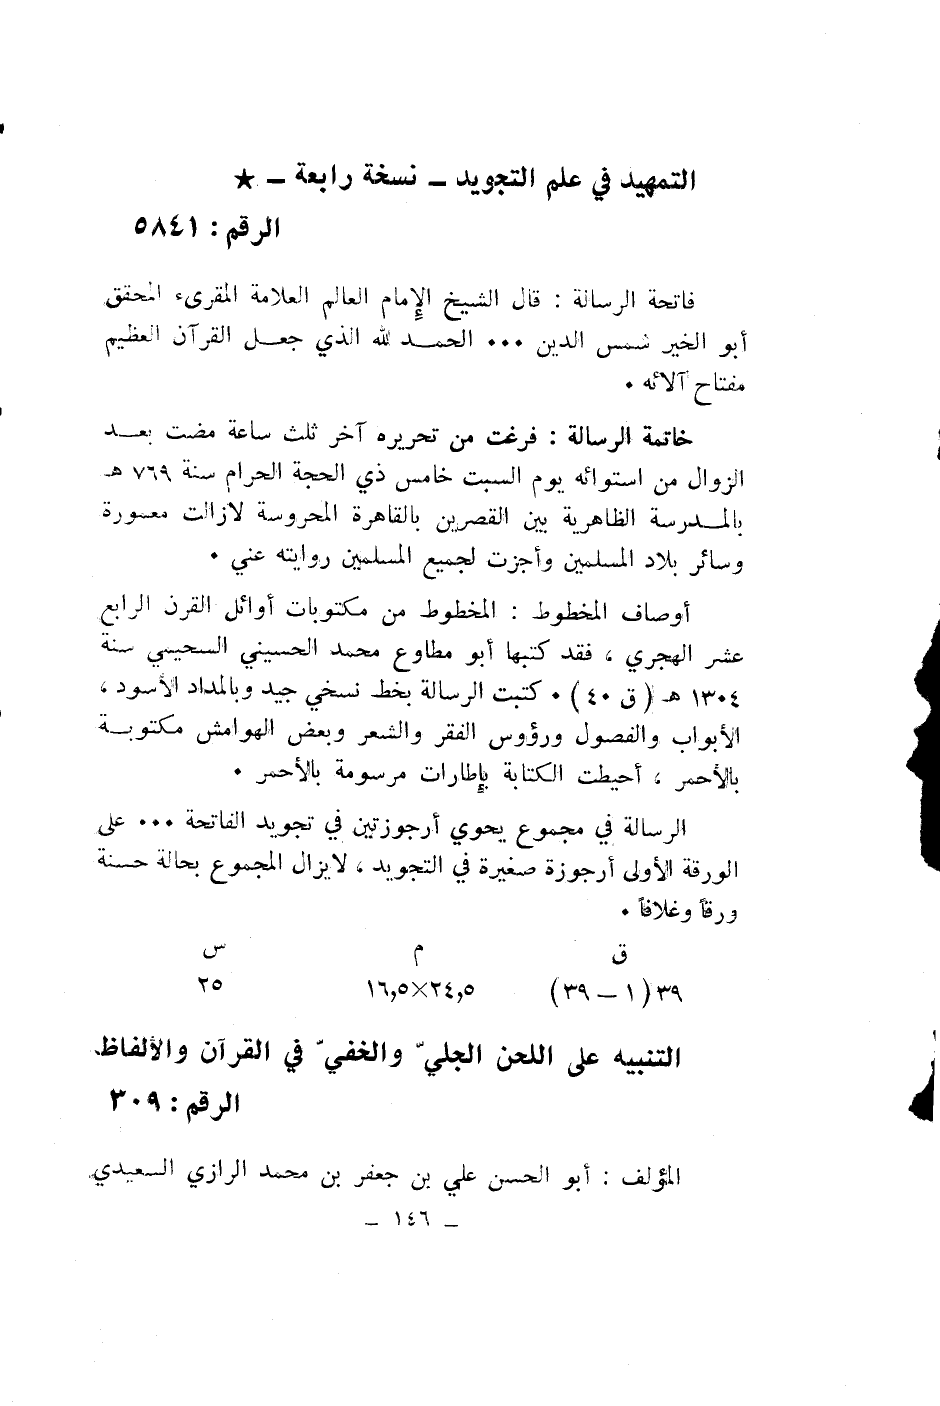 التمهيد في علم التجويد ــ نسخة رابعة ــ ★
الرقم : ٥٨٤١
فاتحة الرسالة : قال الشيخ الإمام العالم العلامة المقرىء المحقق
أبو الخير شمس الدين ٠٠٠ الحمد لله الذي جعل القرآن العظيم
مفتاح آلائه ٠
خاتمة الرسالة : فرغت من تحريره آخر ثلث ساعة مضت بعد
الزوال من استوائه يوم السبت خامس ذي الحجة الحرام سنة ٧٦٩ هـ
بالمدرسة الظاهرية بين القصرين بالقاهرة المحروسة لازالت معمورة
وسائر بلاد المسلمين وأجزت لجميع المسلمين روايته عني ٠
أوصاف المخطوط : المخطوط من مكتوبات أوائل القرن الرابع
عشر الهجري ، فقد كتبها أبو مطاوع محمد الحسيني السحيمي سنة
١٣٠٤ هـ ( ق ٤٠ ) ٠ كتبت الرسالة بخط نسخي جيد وبالمداد الأسود ،
الأبواب والفصول ورؤوس الفقر والشعر وبعض الهوامش مكتوبة
بالأحمر ، أحيطت الكتابة بإطارات مرسومة بالأحمر ٠
الرسالة في مجموع يحوي أرجوزتين في تجويد الفاتحة ٠٠٠ على
الورقة الأولى أرجوزة صغيرة في التجويد ، لايزال المجموع بحالة حسنة
ورقاً وغلافاً ٠
ق م س
٣٩ ( ١ ــ ٣٩ ) ٢٤,٥×١٦,٥ ٢٥
التنبيه على اللحن الجليّ والخفيّ في القرآن والألفاظ
الرقم : ٣٠٩
المؤلف : أبو الحسن علي بن جعفر بن محمد الرازي السعيدي
ــ ١٤٦ ــ